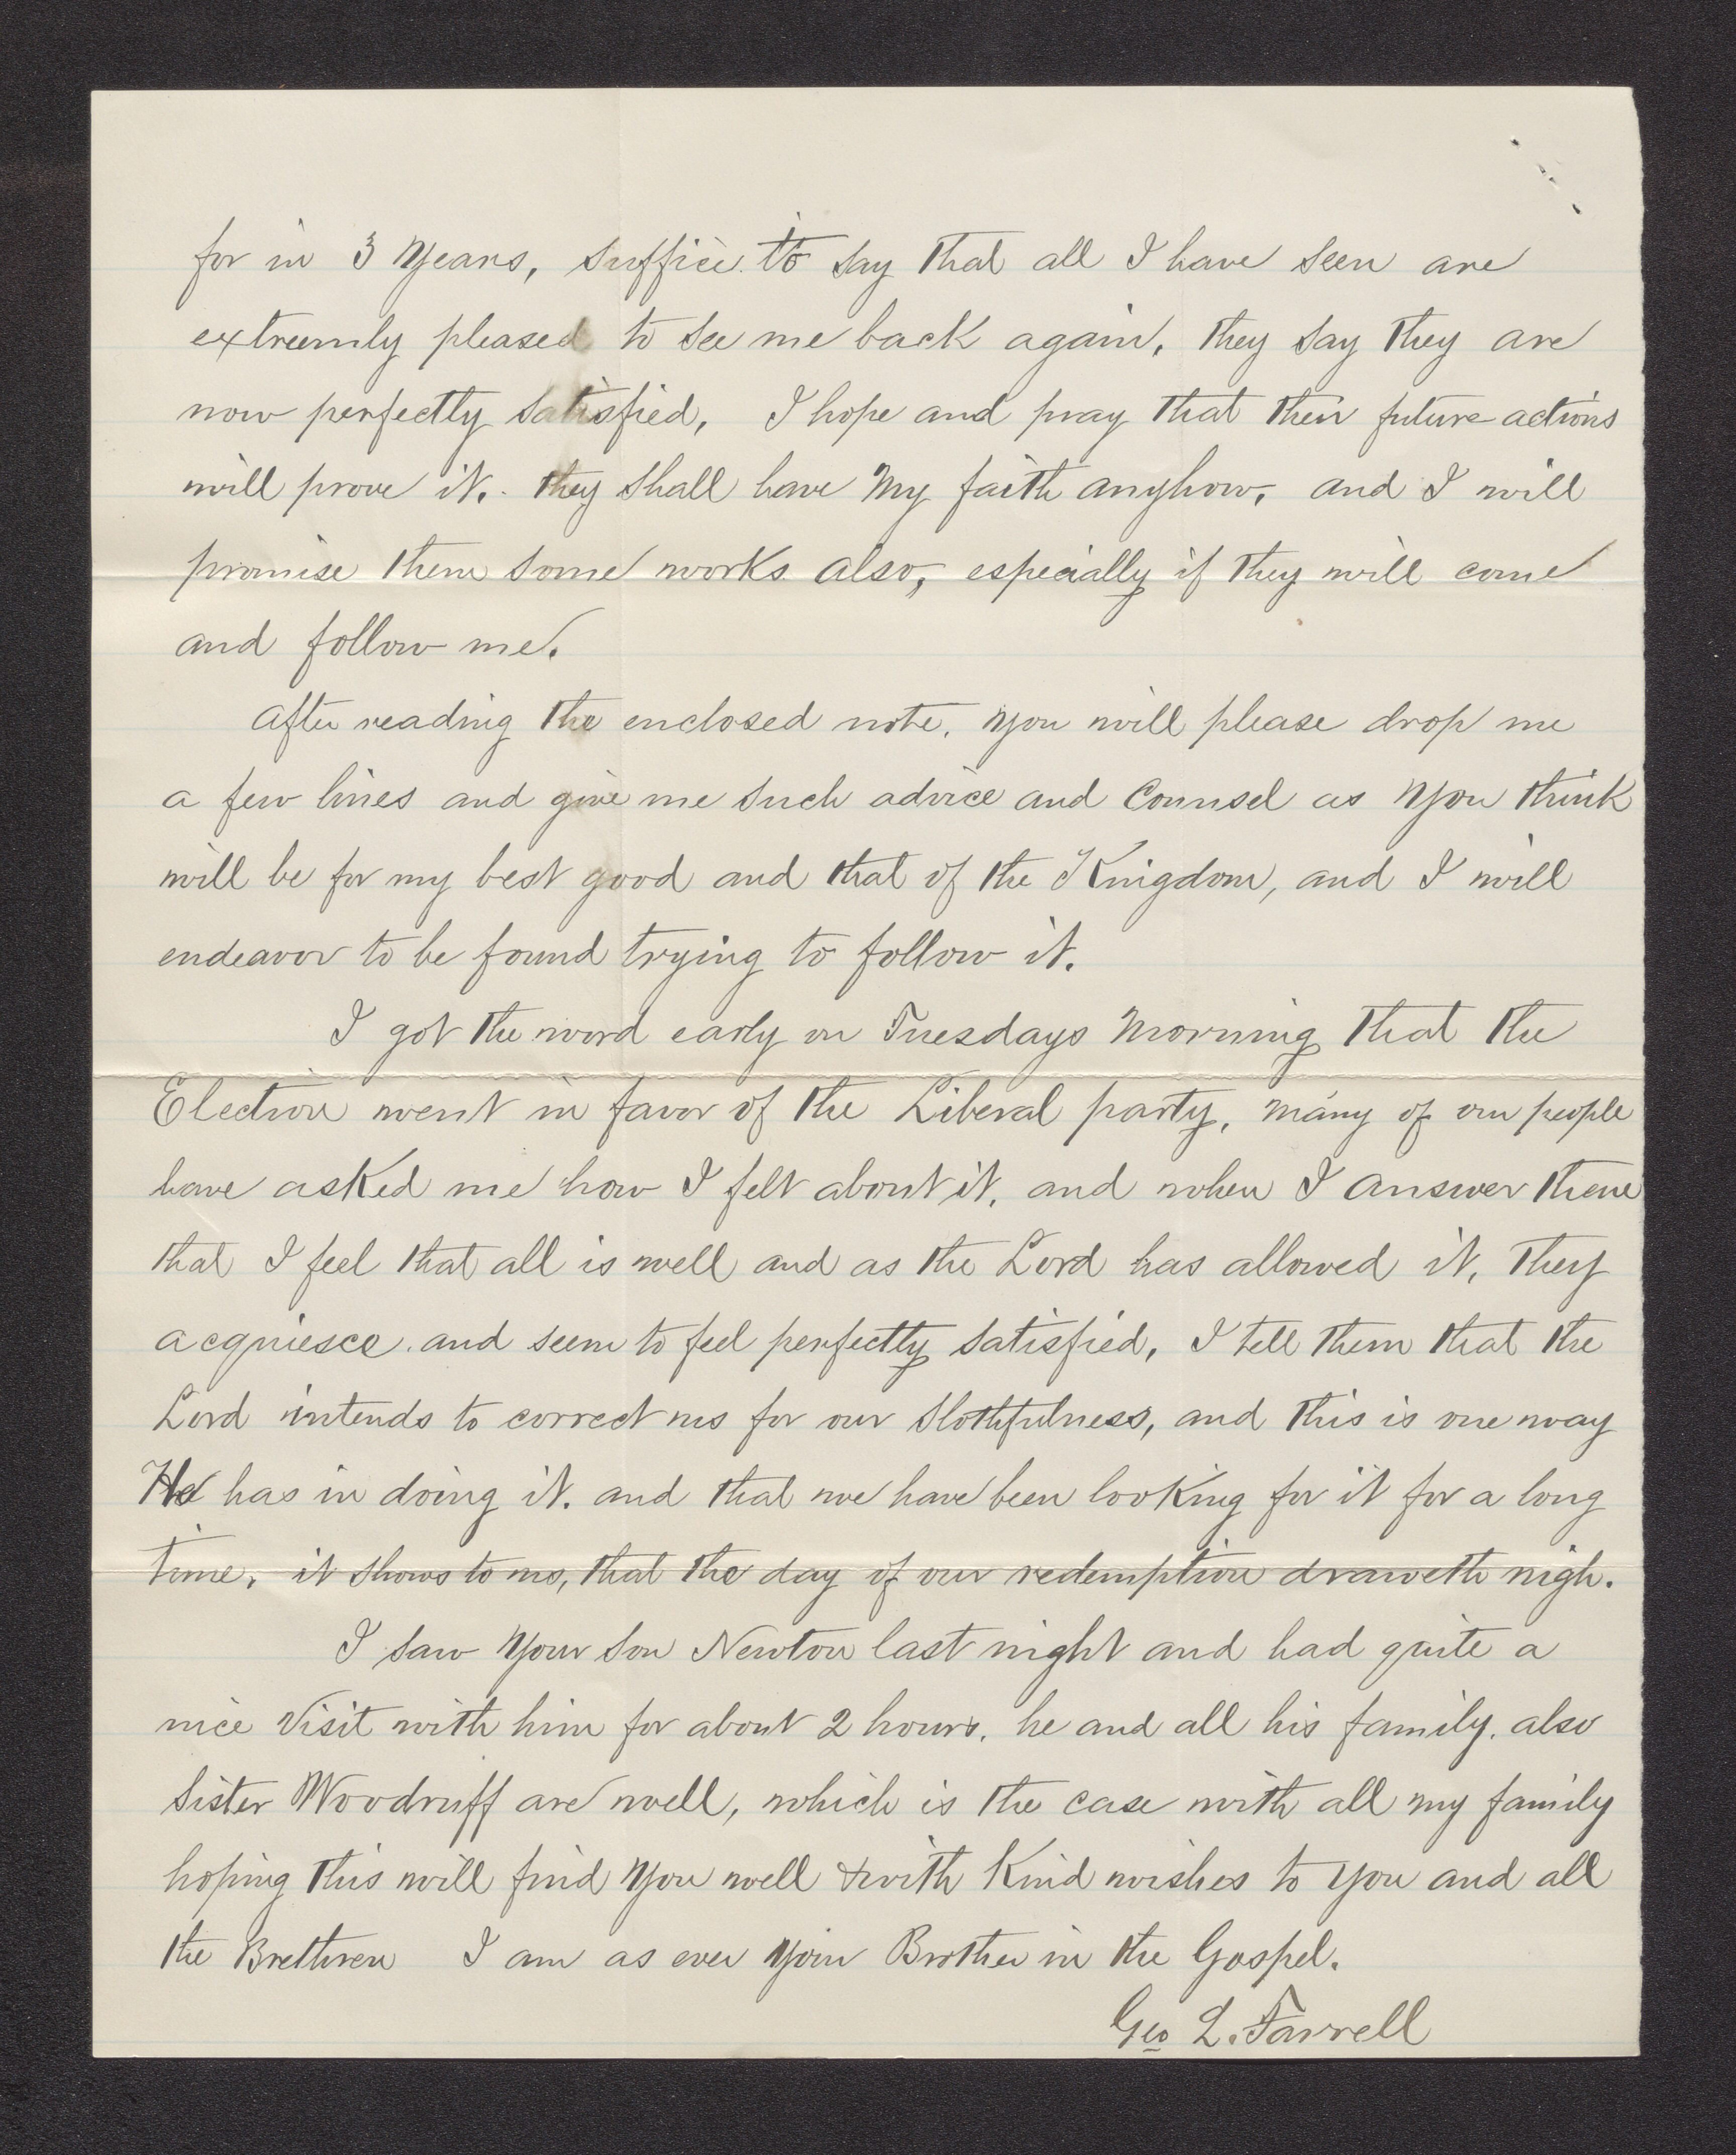 for in 3 Years, suffice to say that all I have seen are
extreemly pleased to see me back again, they say they are
now perfectly satisfied, I hope and pray that their future actions
will prove it. they shall have my faith anyhow, and I will
promise them some works also, especially if they will come
and follow me.
After reading the enclosed note, you will please drop me
a few lines and give me such advice and Counsel as you think
will be for my best good and that of the Kingdom, and I will
endeavor to be found trying to follow it.
I got the word early on Tuesdays morning that the
Election went in favor of the Liberal party, many of our people
have asked me how I felt about it, and when I answer them
that I feel that all is well and as the Lord has allowed it, they
acquiesce. and seem to feel perfectly satisfied, I tell them that the
Lord intends to correct us for our Slothfulness, and this is one way
He has in doing it. and that we have been looking for it for a long
time, it shows to us, that the day of our redemption draweth nigh.
I saw your son Newton last night and had quite a
nice visit with him for about 2 hours, he and all his family, also
Sister Woodruff are well, which is the case with all my family
hoping this will find you well & with Kind wishes to you and all
the Brethren I am as ever your Brother in the Gospel.
Geo L. Farrell